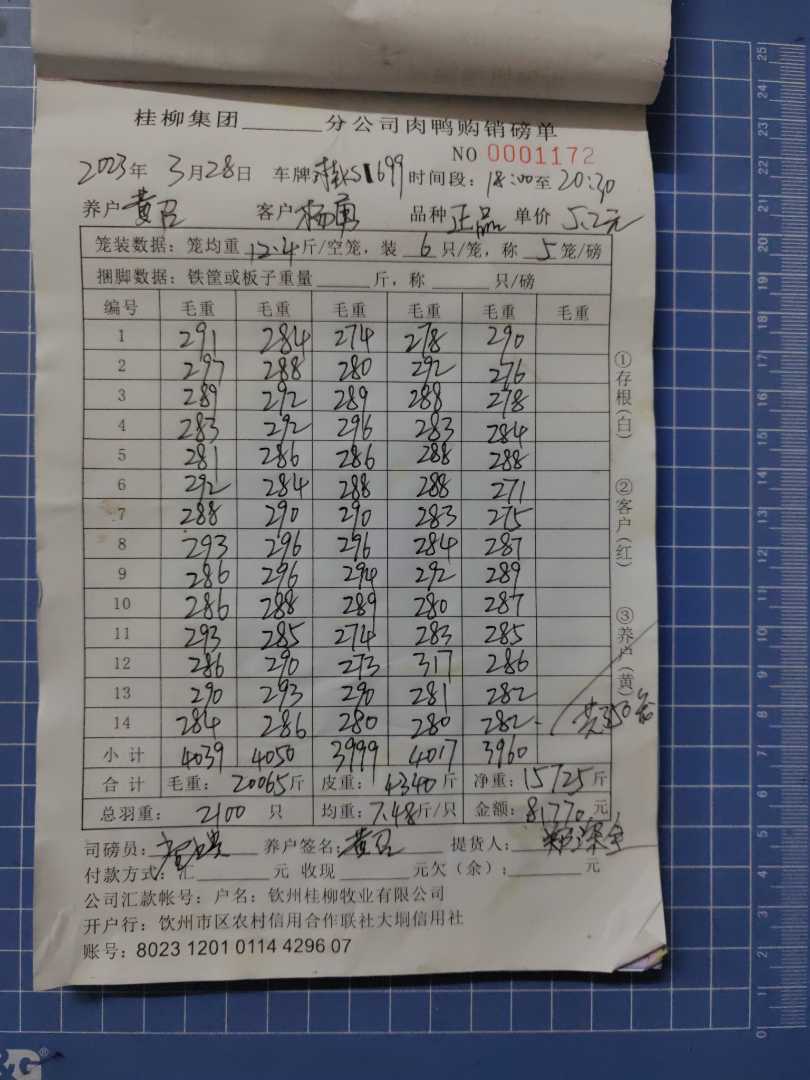 桂柳集团______分公司肉鸭购销磅单
NO 0001172
2023年 3月28日 车牌 桂KS1699 时间段: 18:00至 20:30
养户 黄 客户 杨勇 品种 正品 单价 5.2元
笼装数据: 笼均重 12.4斤/空笼, 装 6 只/笼, 称 5 笼/磅
捆脚数据: 铁筐或板子重量 ______ 斤, 称 ______ 只/磅
编号 毛重 毛重 毛重 毛重 毛重 毛重
1 291 284 274 278 290
2 297 288 280 292 276
3 289 292 289 288 278
4 283 292 296 283 284
5 281 286 286 288 288
6 292 284 288 288 271
7 288 290 290 283 275
8 293 296 296 284 287
9 286 296 294 292 289
10 286 288 289 280 287
11 293 285 274 283 285
12 286 290 273 317 286
13 290 293 290 281 282
14 284 286 280 280 282
共350笼
小计 4039 4050 3999 4017 3960
合计 毛重: 20065斤 皮重: 4340斤 净重: 15725斤
总羽重: 2100 只 均重: 7.48斤/只 金额: 81770元
司磅员: 养户签名: 黄 提货人:
付款方式: 汇______元 收现______元欠(余): ______元
公司汇款帐号: 户名: 钦州桂柳牧业有限公司
开户行: 钦州市区农村信用合作联社大垌信用社
账号: 8023 1201 0114 4296 07
①存根(白)
②客户(红)
③养户(黄)
0 1 2 3 4 5 6 7 8 9 10 11 12 13 14 15 16 17 18 19 20 21 22 23 24 25
&G®